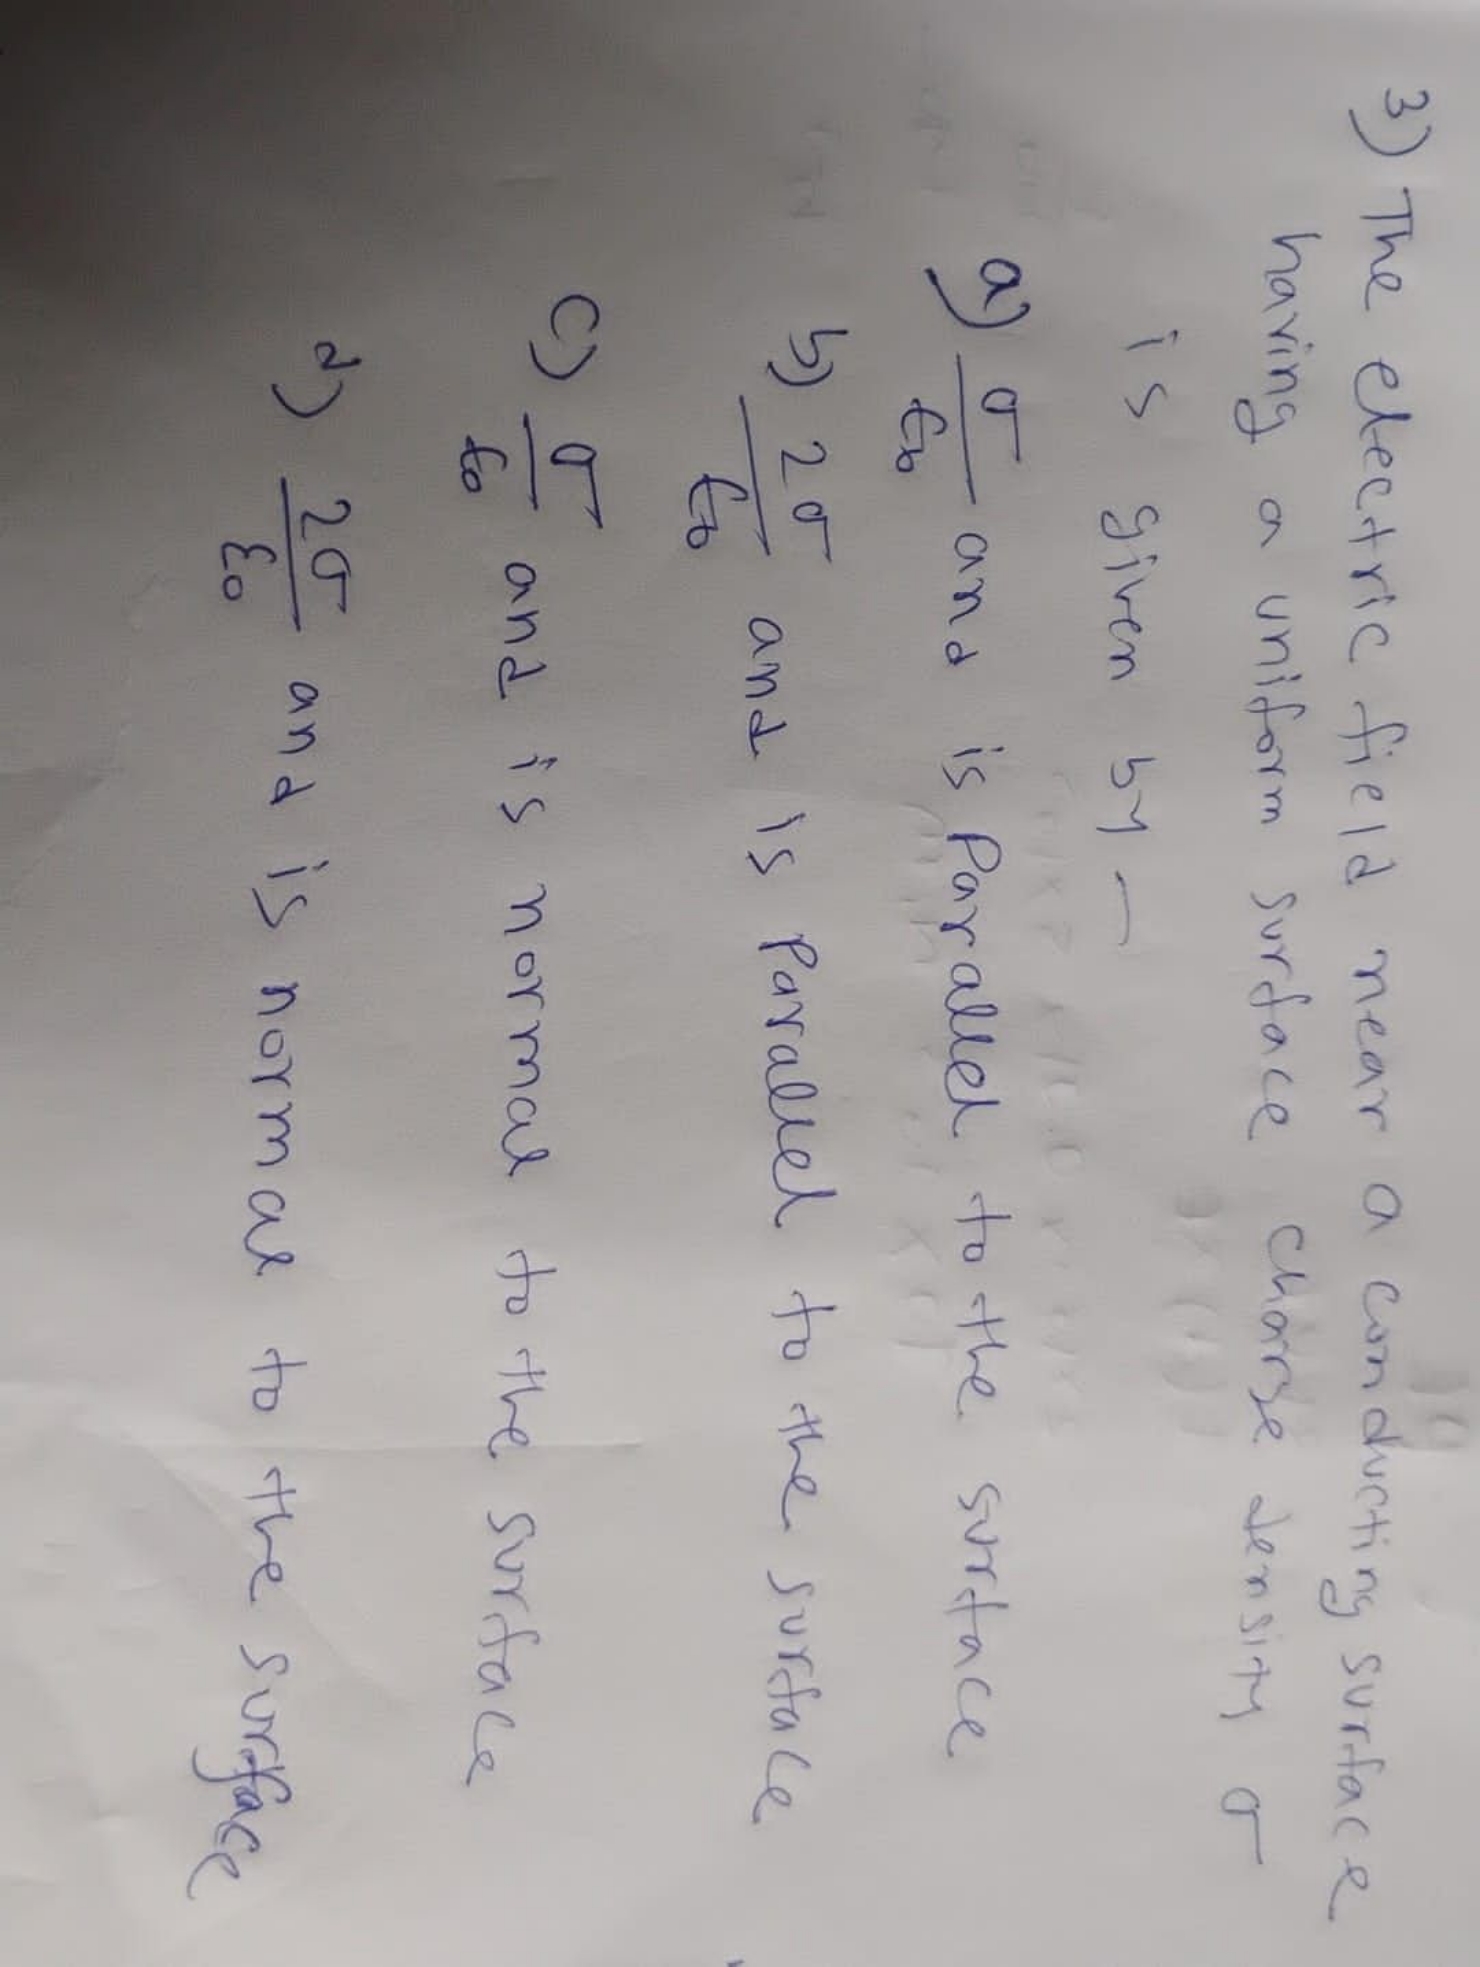 3) The electric field near a conducting surface
having a uniform surface charge density σ
is given by —
a) σ/ε₀ and is Parallel to the surface
b) 2σ/ε₀ and is Parallel to the surface
c) σ/ε₀ and is normal to the surface
d) 2σ/ε₀ and is normal to the surface